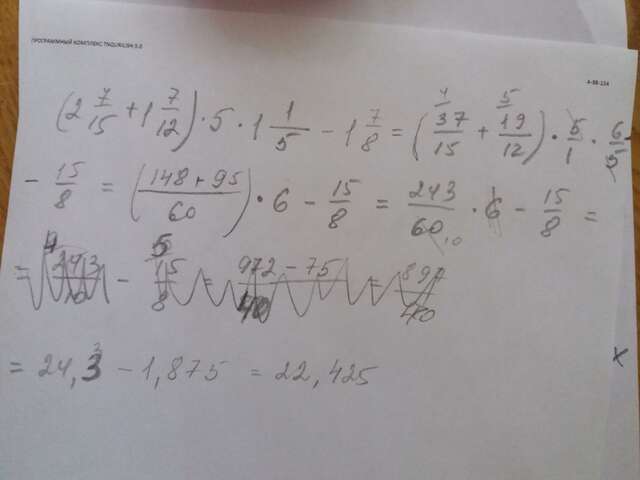 ПРОГРАММНЫЙ КОМПЛЕКС
(2 7/15 + 1 7/12) · 5 · 1 1/5 - 1 7/8 = (37/15 + 19/12) · 5/1 · 6/5
- 15/8 = (148 + 95/60) · 6 - 15/8 = 243/60 · 6 - 15/8 =
= 243/10 - 15/8 = 972 - 75/40 = 897/40
= 24,3 - 1,875 = 22,425
x